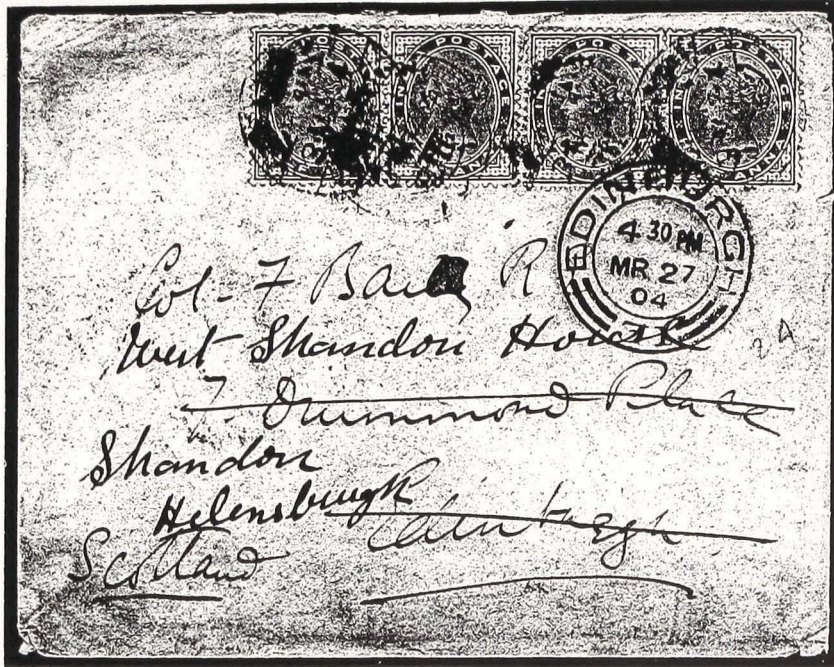 INDIA POSTAGE INDIA POSTAGE INDIA POSTAGE INDIA POSTAGE
ANNA
EDINBURGH
4.30 PM
MR 27
04
Col - F R
West Shandon House
7. Drummond Place
Shandon
Helensburgh Edinburgh
Scotland